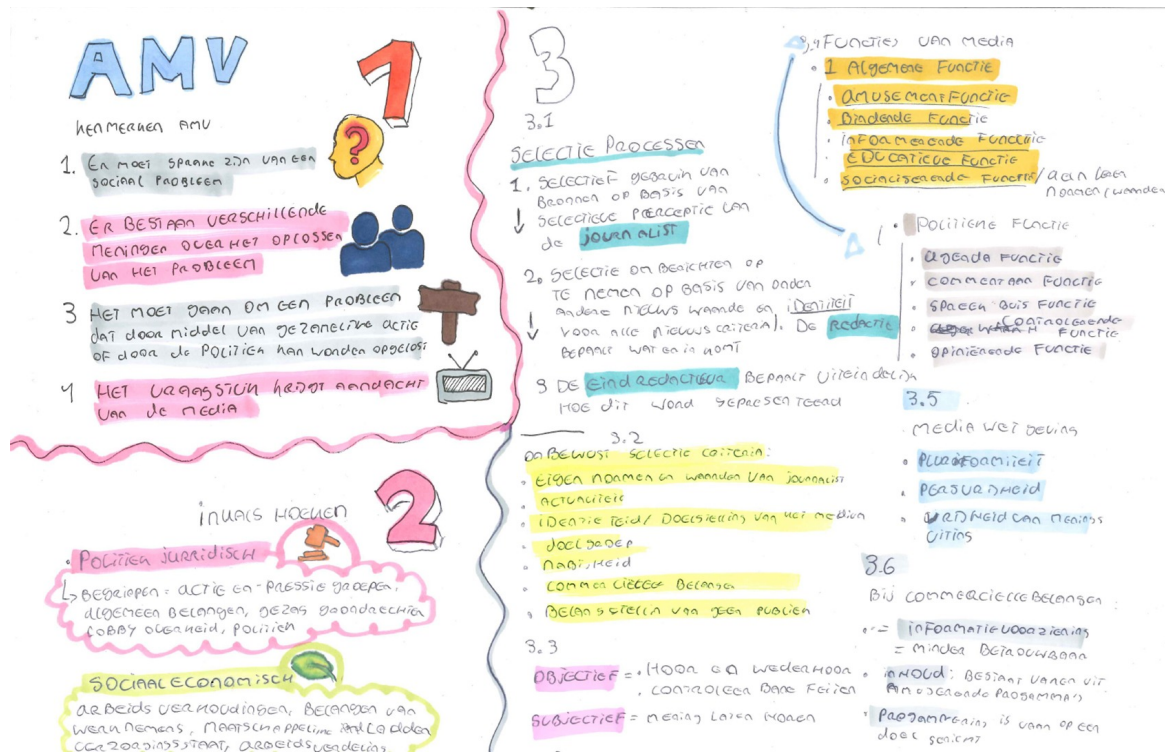 AMV
1
KENMERKEN AMV
1. ER MOET SPRAKE ZIJN VAN EEN
SOCIAAL PROBLEEM
?
2. ER BESTAAN VERSCHILLENDE
MENINGEN OVER HET OPLOSSEN
VAN HET PROBLEEM
3 HET MOET GAAN OM EEN PROBLEEM
DAT DOOR MIDDEL VAN GEZAMELIJKE ACTIE
OF DOOR DE POLITIEK KAN WORDEN OPGELOST
4 HET VRAAGSTUK KRIJGT AANDACHT
VAN DE MEDIA
2
INVALSHOEKEN
• POLITIEK JURRIDISCH
↳ BEGRIPPEN = ACTIE EN -PRESSIE GROEPEN,
ALGEMEEN BELANGEN, GEZAG GRONDRECHTEN
LOBBY OVERHEID, POLITIEK
SOCIAAL ECONOMISCH
ARBEIDS VERHOUDINGEN, BELANGEN VAN
WERKNEMERS, MAATSCHAPPELIJKE
VERZORGINGSSTAAT, ARBEIDSVERDELING
3
3.1
SELECTIE PROCESSEN
1. SELECTIEF GEBRUIK VAN
BRONNEN OP BASIS VAN
↓ SELECTIEVE PERCEPTIE VAN
de JOURNALIST
2. SELECTIE OM BERICHTEN OP
TE NEMEN OP BASIS VAN ONDER
ANDERE NIEUWS WAARDE EN IDENTITEIT
↓ VOOR ALLE NIEUWS CRITERIA). DE REDACTIE
BEPAALT WAT ER IN KOMT
3 DE EINDREDACTEUR BEPAALT UITEINDELIJK
HOE DIT WORD GEPRESENTEERD
3.2
ONBEWUST SELECTIE CRITERIA:
• EIGEN NORMEN EN WAARDEN VAN JOURNALIST
• ACTUALITEIT
• IDENTITEID / DOELSTELLING VAN HET MEDIUM
• DOELGROEP
• NABIJHEID
• COMMERCIËLE BELANGEN
• BELANGSTELLIN VAN GEEN PUBLIEK
3.3
OBJECTIEF = • HOOR EN WEDERHOOR
• CONTROLEER BARE FEITEN
SUBJECTIEF = MENING LATEN HOREN
3.4 FUNCTIES VAN MEDIA
• 1 ALGEMENE FUNCTIE
• AMUSEMENT FUNCTIE
• BINDENDE FUNCTIE
• INFORMERENDE FUNCTIE
• EDUCATIEVE FUNCTIE
• SOCIALISERENDE FUNCTIE / AEIN LEER
NORMEN/WAARDEN
• POLITIEKE FUNCTIE
• AGENDA FUNCTIE
• COMMENTAAR FUNCTIE
• SPREEK BUIS FUNCTIE
• CONTROLERENDE
FUNCTIE
• OPINIËRENDE FUNCTIE
3.5
MEDIA WETGEVING
• PLURIFORMITEIT
• PERSVRIJHEID
• VRIJHEID VAN MENINGS
UITING
3.6
BIJ COMMERCIELLE BELANGEN:
• = INFORMATIEVOORZIENING
= MINDER BETROUWBAAR
• INHOUD: BESTAAT VAKEN UIT
AMUSERENDE PROGAMMA'S
• PROGAMMERING IS VAAK OP EEN
DOEL GERICHT